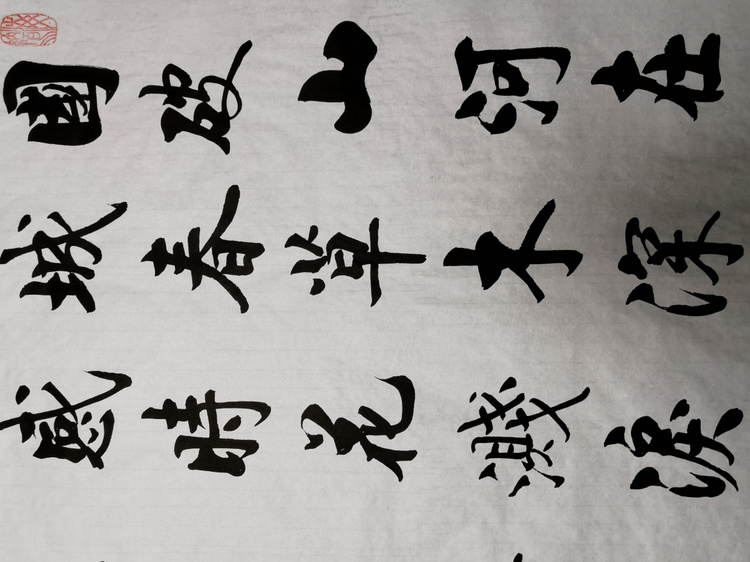 國破山河在
城春草木深
感時花濺淚